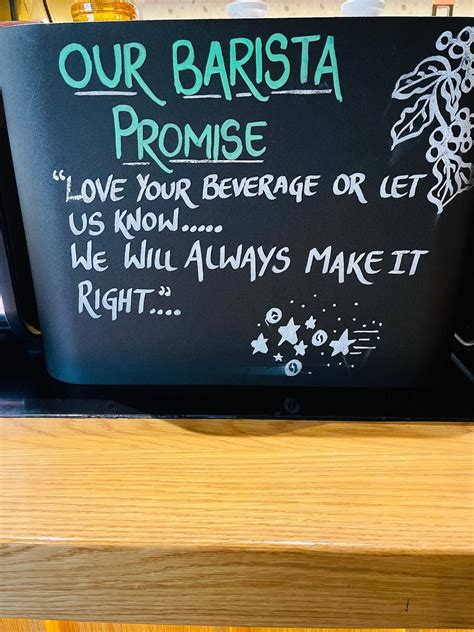 OUR BARISTA
PROMISE
"LOVE YOUR BEVERAGE OR LET
US KNOW.....
WE WILL ALWAYS MAKE IT
RIGHT"....